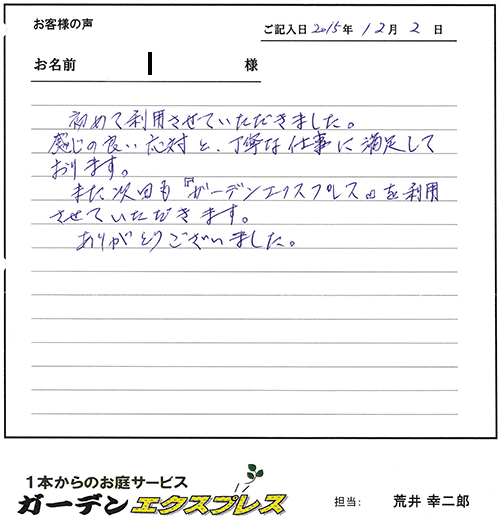 お客様の声
ご記入日 2015年 12月 2日
お名前 様
初めて利用させていただきました。
感じの良い応対と、丁寧な仕事に満足して
おります。
また次回も『ガーデンエクスプレス』を利用
させていただきます。
ありがとうございました。
1本からのお庭サービス
ガーデンエクスプレス
担当: 荒井 幸二郎